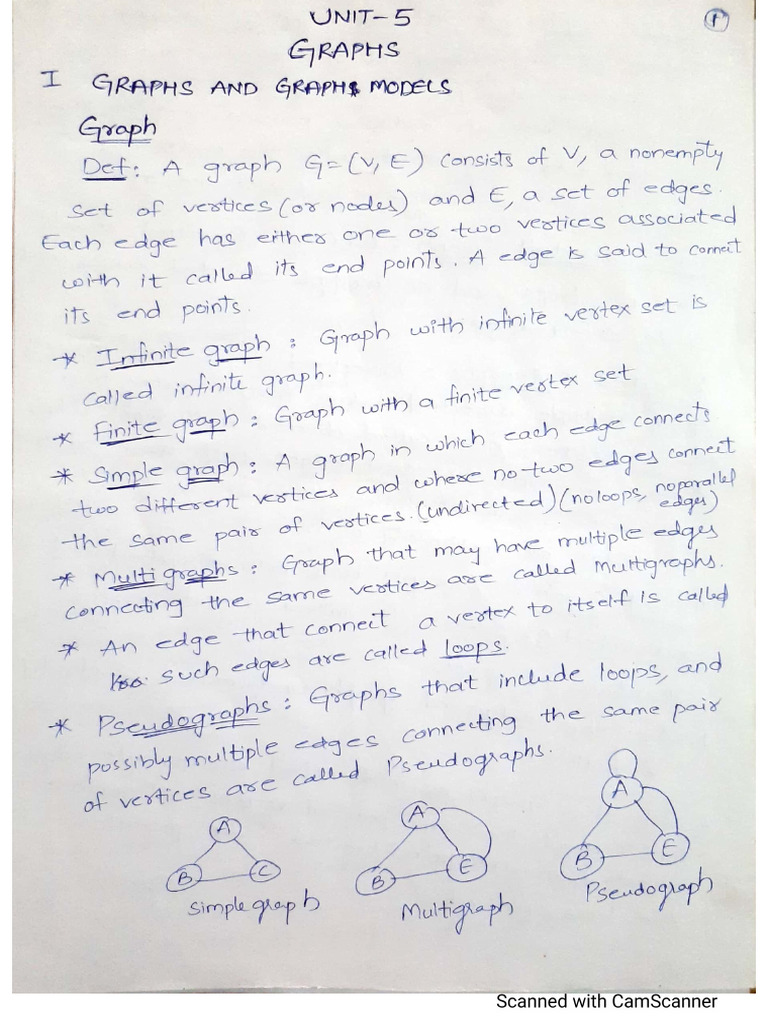 UNIT-5
1
GRAPHS
I GRAPHS AND GRAPHS MODELS
Graph
Def: A graph G=(V, E) consists of V, a nonempty
set of vertices (or nodes) and E, a set of edges.
Each edge has either one or two vertices associated
with it called its end points. A edge is said to connect
its end points.
* Infinite graph : Graph with infinite vertex set is
called infinite graph.
* Finite graph : Graph with a finite vertex set
* Simple graph : A graph in which each edge connects
two different vertices and where no two edges connect
the same pair of vertices. (undirected) (no loops, no parallel
edges)
* Multi graphs : Graph that may have multiple edges
connecting the same vertices are called Multigraphs.
* An edge that connect a vertex to itself is called
such edges are called loops.
* Pseudographs : Graphs that include loops, and
possibly multiple edges connecting the same pair
of vertices are called Pseudographs.
A
B C
Simple graph
A
B E
Multigraph
A
B E
Pseudograph
Scanned with CamScanner